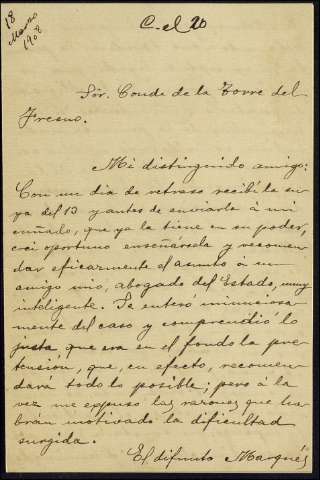 18
Marzo
1908
C-el 20
Sór. Conde de la Torre del
Fresno.
Mi distinguido amigo:
Con un dia de retraso recibí la su-
ya del 13 y antes de enviarla á mi
cuñado, que ya la tiene en su poder,
creí oportuno enseñársela y recomen-
dar eficazmente el asunto á un
amigo mio, abogado del Estado, muy
inteligente. Se enteró minuciosa-
mente del caso y comprendió lo
justa que era en el fondo la pre-
tensión, que, en efecto, recomen-
dará todo lo posible; pero á la
vez me expuso las razones que ha-
brán motivado la dificultad
surgida.
El difunto Marqués